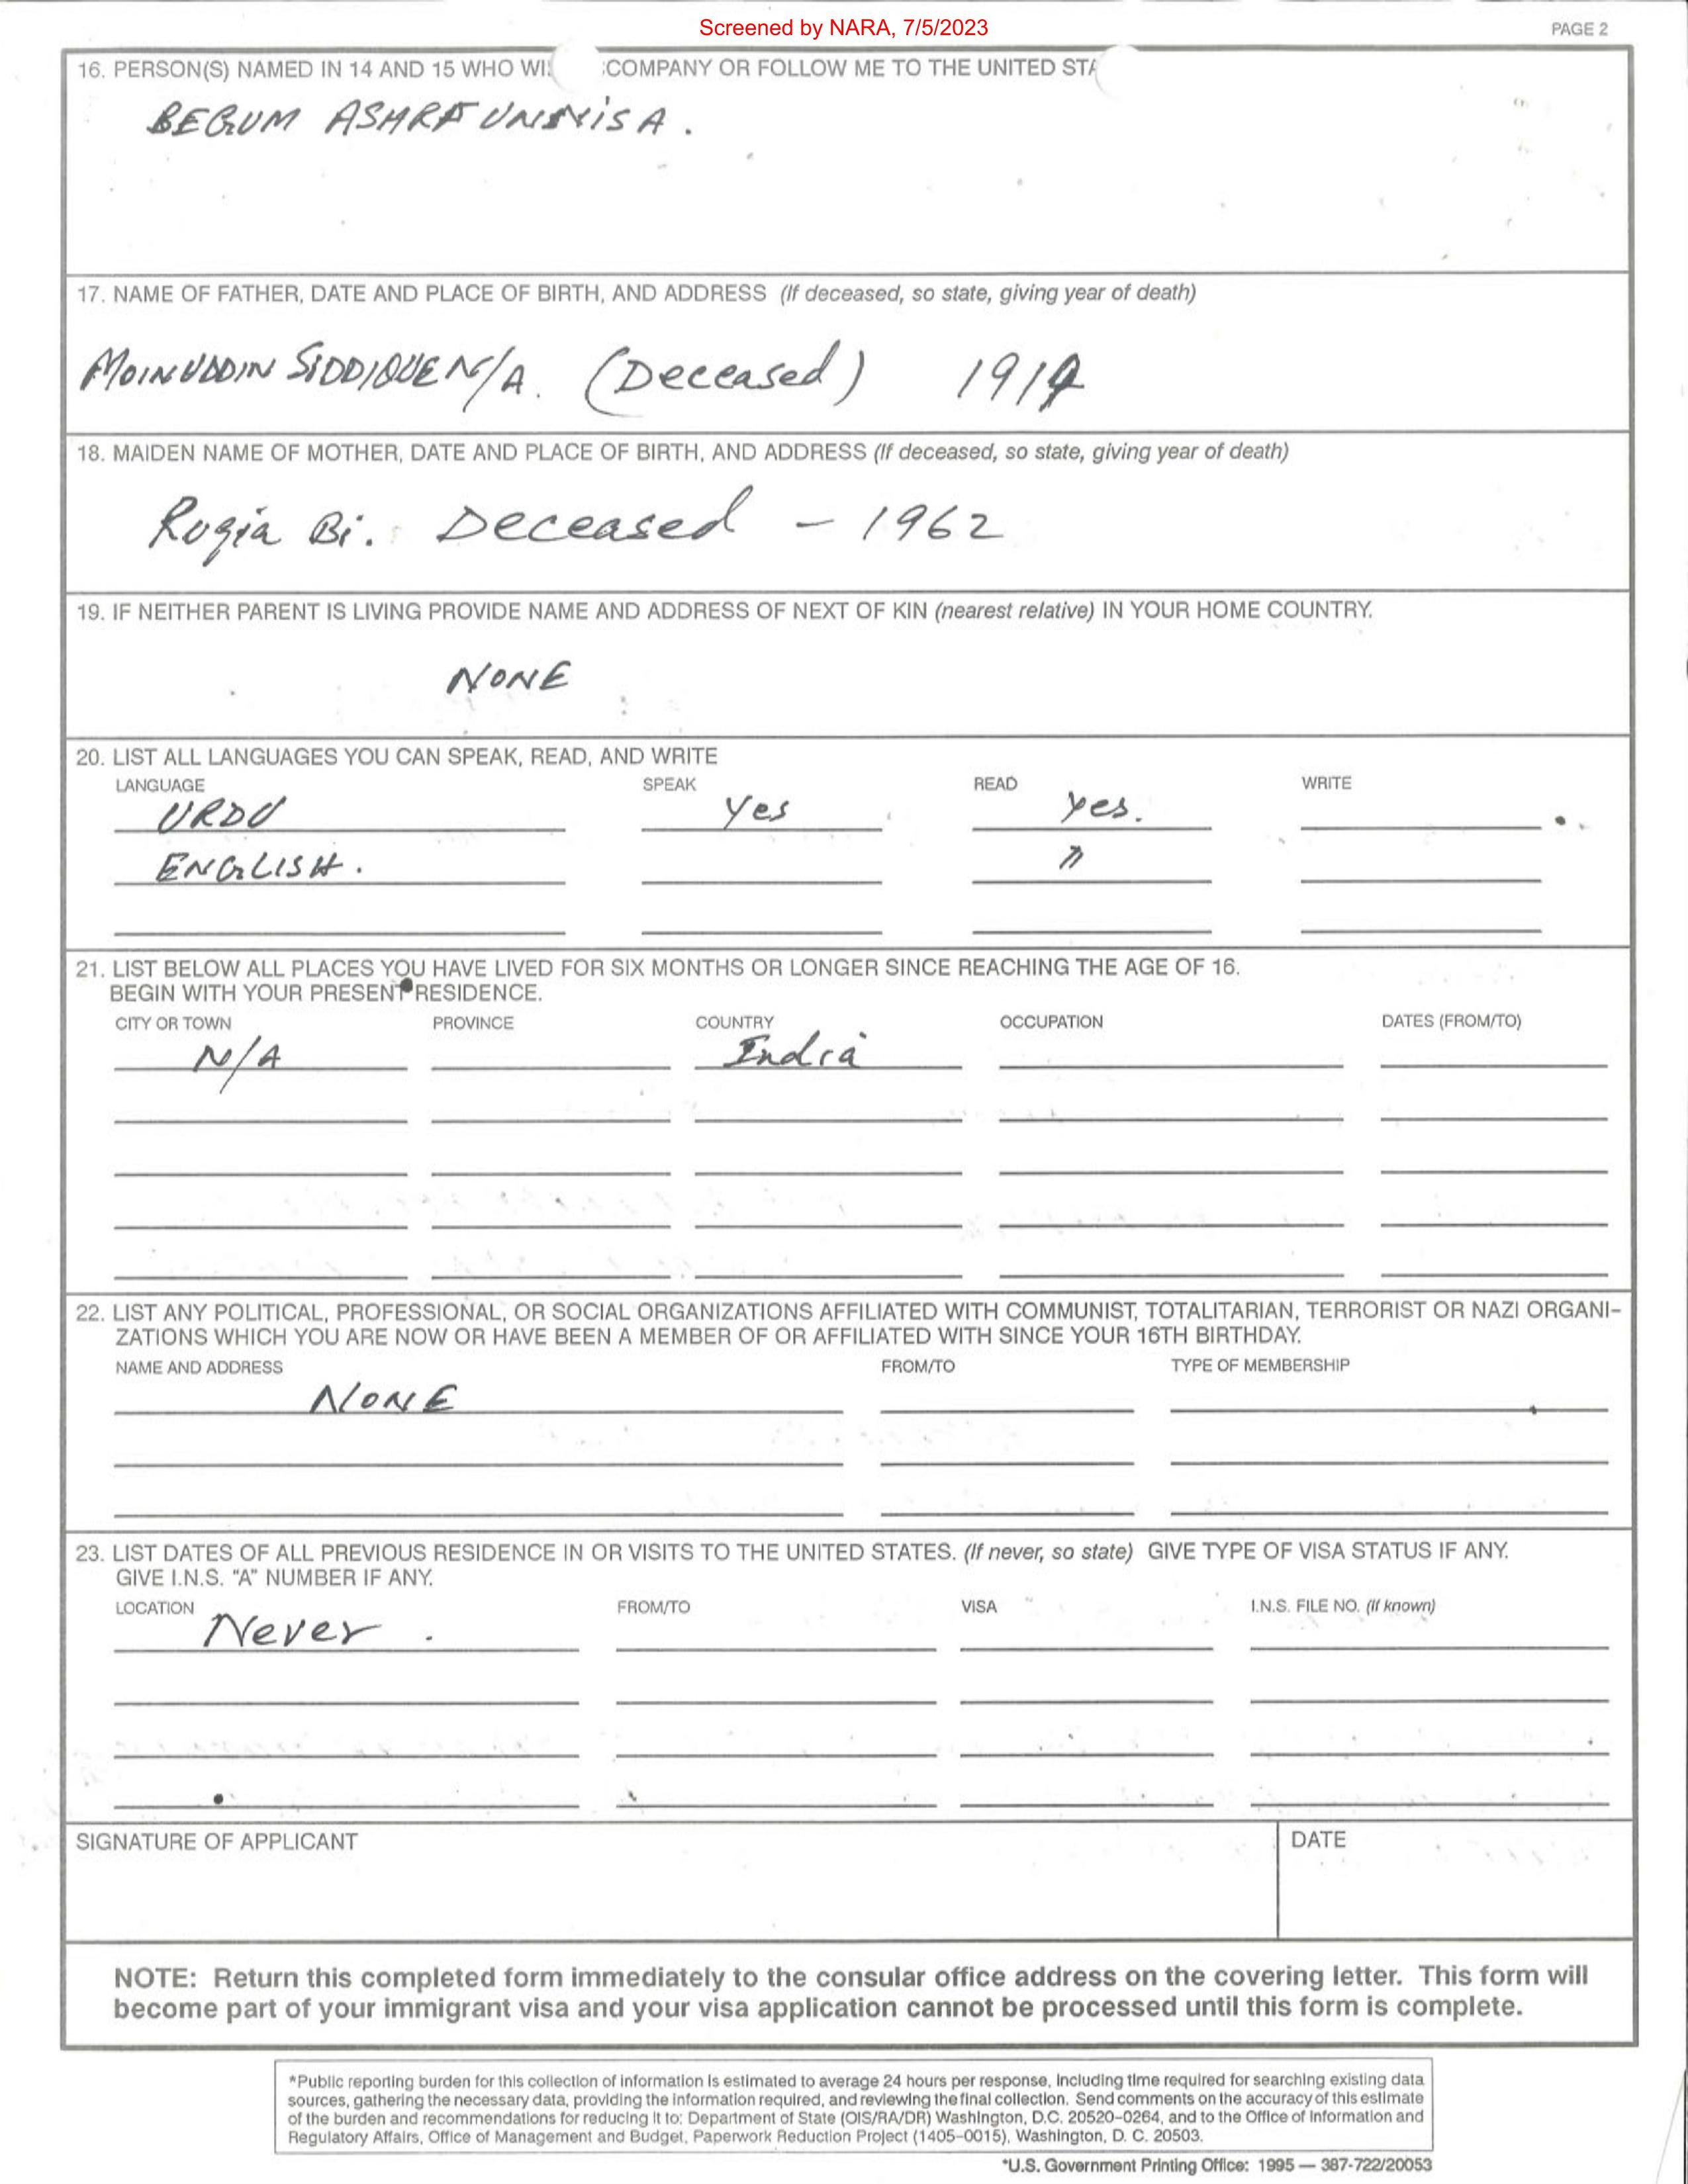 Screened by NARA, 7/5/2023
PAGE 2
16. PERSON(S) NAMED IN 14 AND 15 WHO WI COMPANY OR FOLLOW ME TO THE UNITED STA
BEGUM ASHRAFUNNISA.
17. NAME OF FATHER, DATE AND PLACE OF BIRTH, AND ADDRESS (If deceased, so state, giving year of death)
MOINUDDIN SIDDIQUE N/A. (Deceased)
18. MAIDEN NAME OF MOTHER, DATE AND PLACE OF BIRTH, AND ADDRESS (If deceased, so state, giving year of death)
Rugia Bi. Deceased - 1962
19. IF NEITHER PARENT IS LIVING PROVIDE NAME AND ADDRESS OF NEXT OF KIN (nearest relative) IN YOUR HOME COUNTRY.
NONE
20. LIST ALL LANGUAGES YOU CAN SPEAK, READ, AND WRITE
LANGUAGE SPEAK READ WRITE
URDU Yes Yes.
ENGLISH. 〃
21. LIST BELOW ALL PLACES YOU HAVE LIVED FOR SIX MONTHS OR LONGER SINCE REACHING THE AGE OF 16.
BEGIN WITH YOUR PRESENT RESIDENCE.
CITY OR TOWN PROVINCE COUNTRY OCCUPATION DATES (FROM/TO)
N/A India
22. LIST ANY POLITICAL, PROFESSIONAL, OR SOCIAL ORGANIZATIONS AFFILIATED WITH COMMUNIST, TOTALITARIAN, TERRORIST OR NAZI ORGANI-
ZATIONS WHICH YOU ARE NOW OR HAVE BEEN A MEMBER OF OR AFFILIATED WITH SINCE YOUR 16TH BIRTHDAY.
NAME AND ADDRESS FROM/TO TYPE OF MEMBERSHIP
NONE
23. LIST DATES OF ALL PREVIOUS RESIDENCE IN OR VISITS TO THE UNITED STATES. (If never, so state) GIVE TYPE OF VISA STATUS IF ANY.
GIVE I.N.S. "A" NUMBER IF ANY.
LOCATION FROM/TO VISA I.N.S. FILE NO. (If known)
Never.
SIGNATURE OF APPLICANT DATE
NOTE: Return this completed form immediately to the consular office address on the covering letter. This form will
become part of your immigrant visa and your visa application cannot be processed until this form is complete.
*Public reporting burden for this collection of information is estimated to average 24 hours per response, including time required for searching existing data
sources, gathering the necessary data, providing the information required, and reviewing the final collection. Send comments on the accuracy of this estimate
of the burden and recommendations for reducing it to: Department of State (OIS/RA/DR) Washington, D.C. 20520-0264, and to the Office of Information and
Regulatory Affairs, Office of Management and Budget, Paperwork Reduction Project (1405-0015), Washington, D. C. 20503.
*U.S. Government Printing Office: 1995 — 387-722/20053